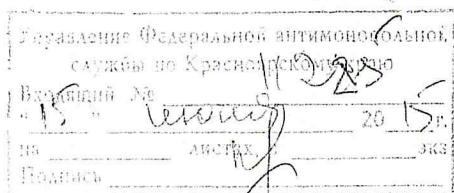 Управление Федеральной антимонопольной
службы по Красноярскому краю
Входящий №
"15" июня 2015 г.
на листах, экз
Подпись